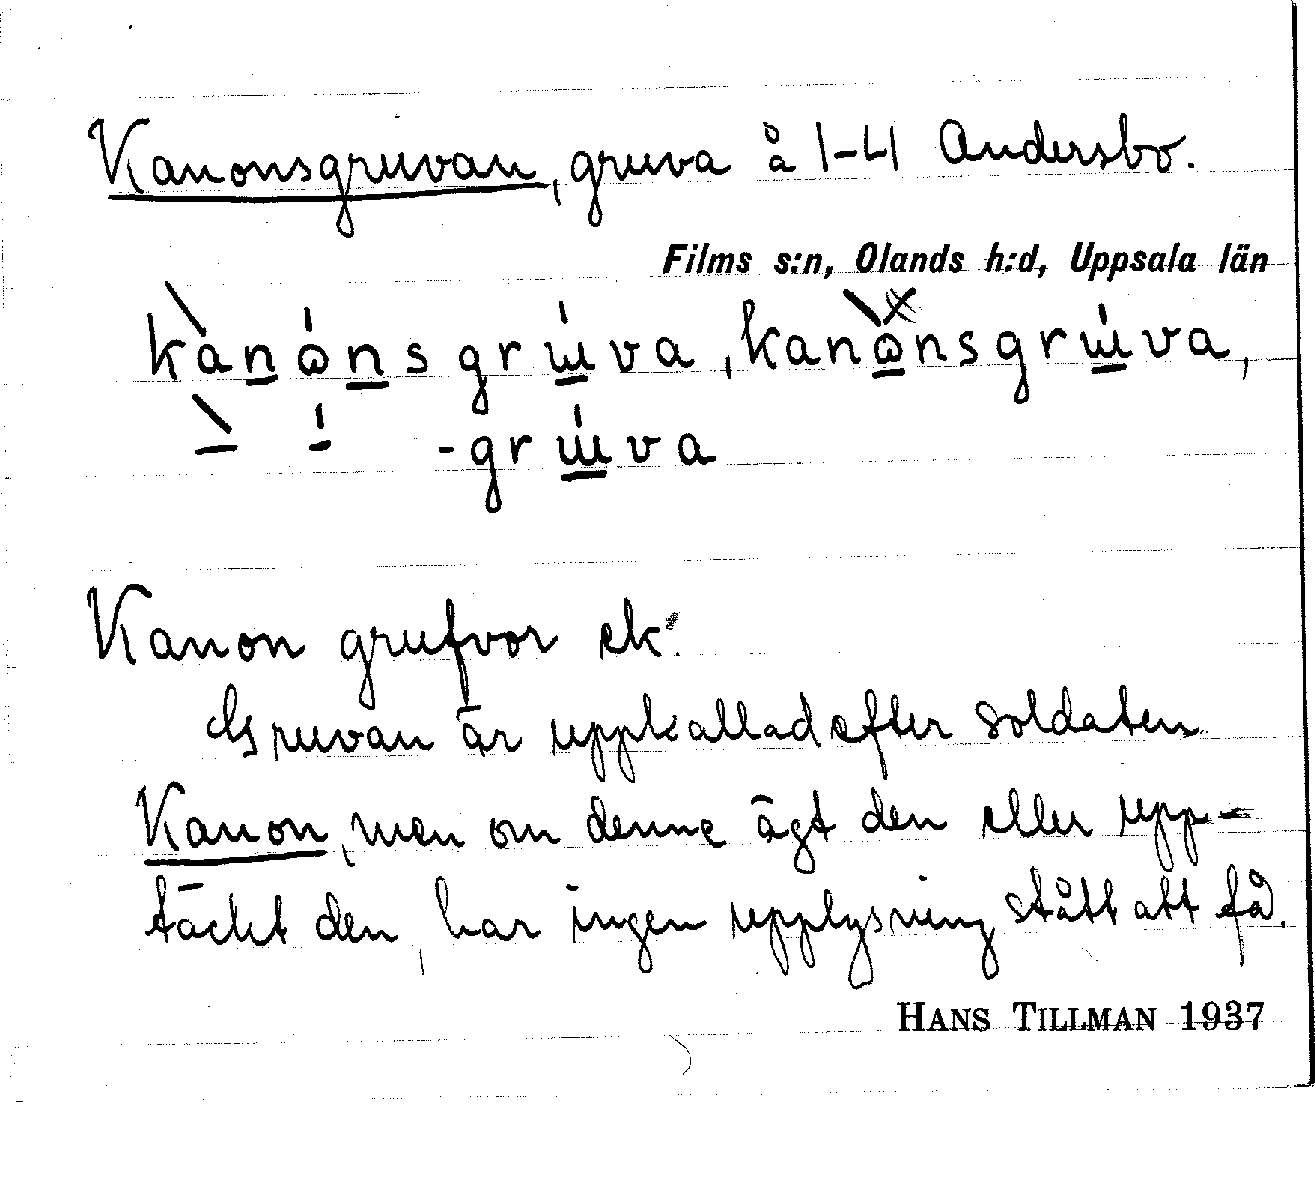 Kanonsgruvan, gruva å 1-4 Andersbo.
Films s:n, Olands h:d, Uppsala län
kànωnsgrɯ́va, kanωnsgrɯ́va,
-grɯ́va
Kanon grufvor ek.
Gruvan är uppkallad efter soldaten
Kanon, men om denne ägt den eller upp-
täckt den, har ingen upplysning stått att få.
HANS TILLMAN 1937